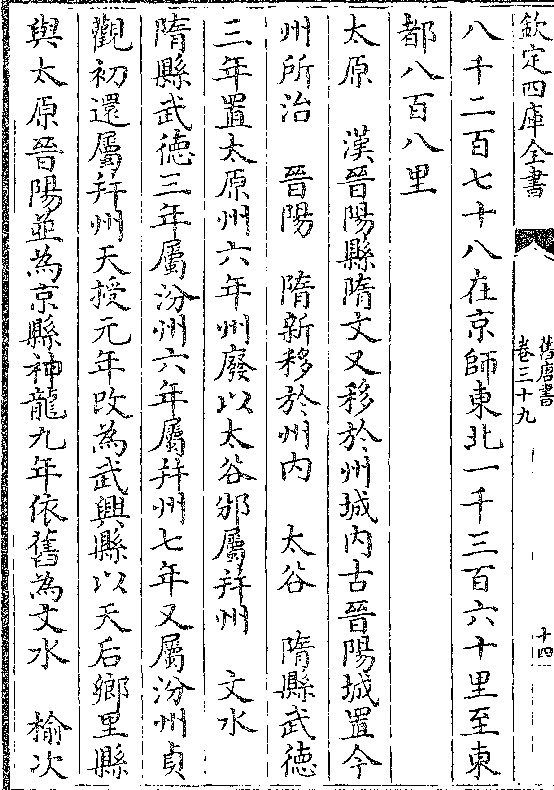 欽定四庫全書
舊唐書
卷三十九
十四
八千二百七十八在京師東北一千三百六十里至東
都八百八里
太原　漢晉陽縣隋文又移於州城内古晉陽城置今
州所治　晉陽　隋新移於州内　太谷　隋縣武德
三年置太原州六年州廢以太谷邠屬幷州　文水
隋縣武德三年屬汾州六年屬幷州七年又屬汾州貞
觀初還屬幷州天授元年改為武興縣以天后鄉里縣
與太原晉陽並為京縣神龍九年依舊為文水　榆次